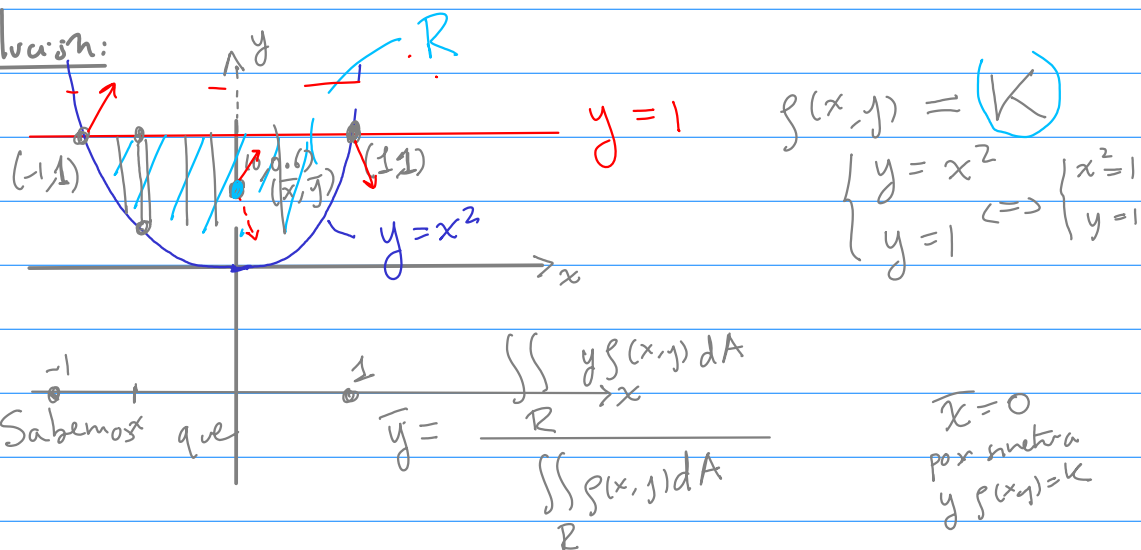 lución:
y
R
y = 1
ρ(x,y) = K
(-1,1)
(1,1)
(x̄, ȳ)
y = x²
{ y = x²
y = 1
<=> { x²=1
y = 1
x
-1
1
x
x
Sabemos que ȳ = ∬_R yρ(x,y) dA / ∬_R ρ(x,y) dA
x̄ = 0
por simetría
y ρ(x,y)=K